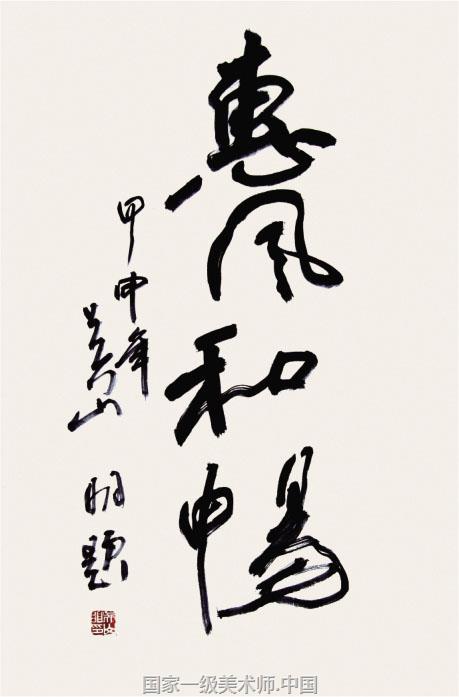 惠风和畅
甲申年
明题
国家一级美术师.中国